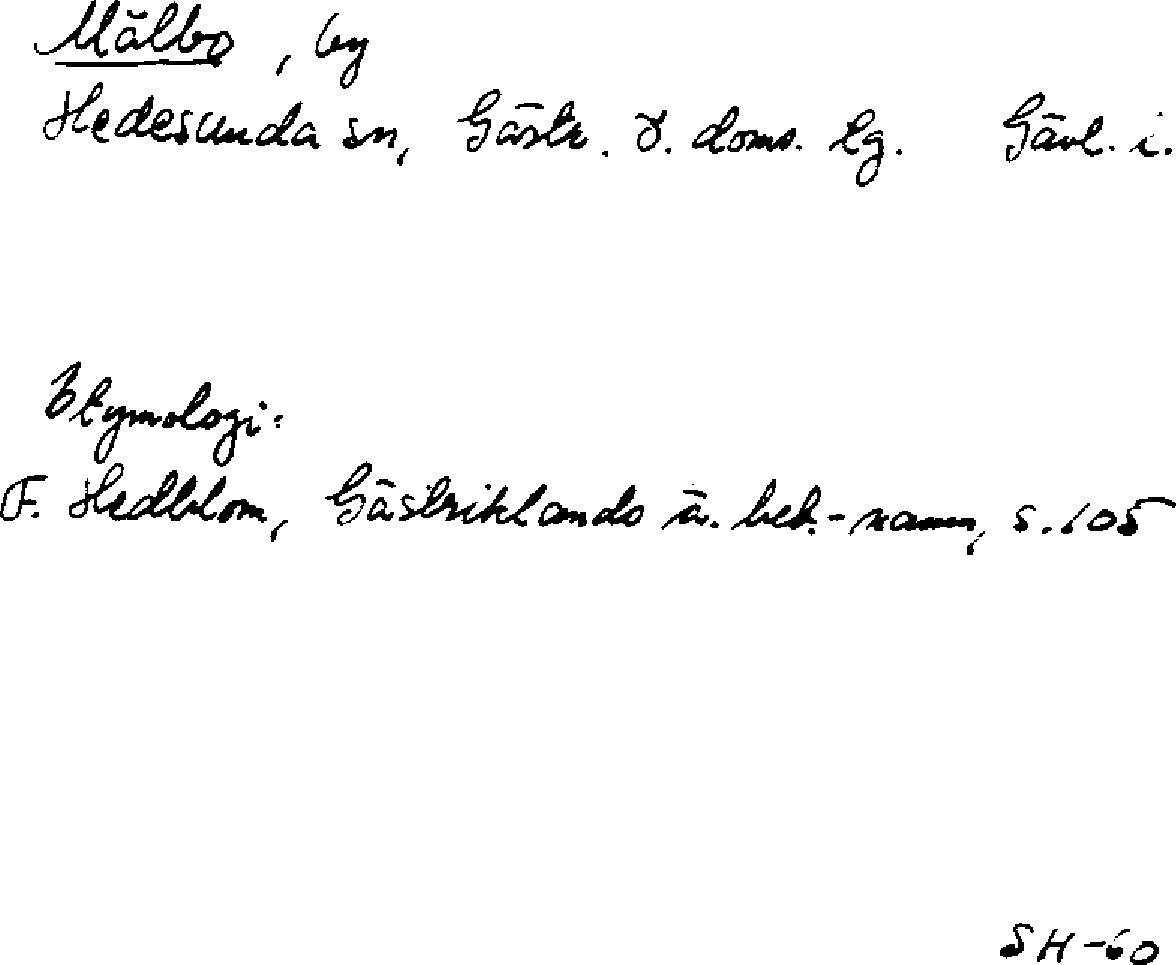 Mälbo, by
Hedesunda sn, Gästr. Ö. doms. lg. Gävl. l.
Etymologi:
F. Hedblom, Gästriklands ä. beb.-namn, s. 105
SH-60